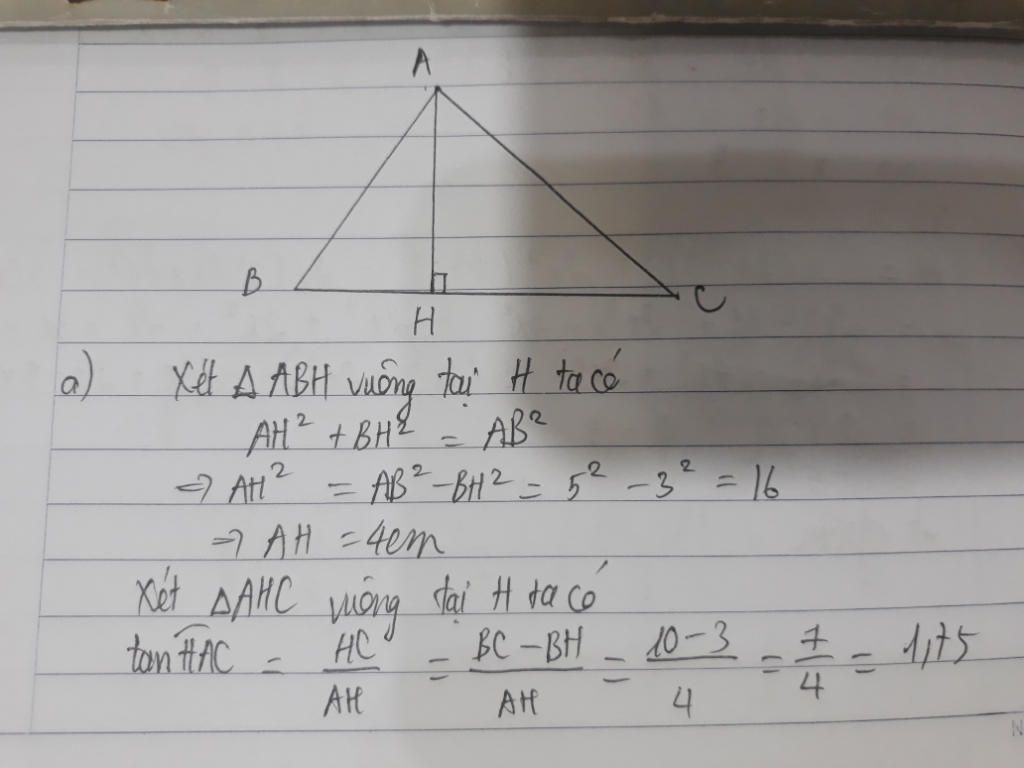 A
B
H
C
a) Xét △ ABH vuông tại H ta có
AH² + BH² = AB²
⇒ AH² = AB² - BH² = 5² - 3² = 16
⇒ AH = 4cm
Xét △AHC vuông tại H ta có
tan HAC = HC/AH = BC - BH/AH = 10 - 3/4 = 7/4 = 1,75
N